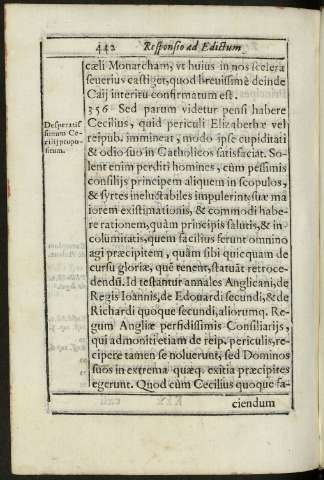 442 Responsio ad Edictum
cæli Monarcham, vt huius in nos scelera
seuerius castiget, quod breuissimè deinde
Caij interitu confirmatum est.
356 Sed parum videtur pensi habere
Desperatis
simum Ce-
cilij propo-
situm.
Cecilius, quid periculi Elizabethæ vel
reipub. immineat, modo ipse cupiditati
& odio suo in Catholicos satisfaciat. So-
lent enim perditi homines, cùm pessimis
consilijs principem aliquem in scopulos,
& syrtes ineluctabiles impulerint, suæ ma
iorem existimationis, & commodi habe-
re rationem, quàm principis salutis, & in-
columitatis, quem faciliùs ferunt omnino
agi præcipitem, quàm sibi quicquam de
cursu gloriæ, què tenent, statuät retroce-
dendú. Id testantur annales Anglicani, de
Regis Ioannis, de Edouardi secundi, & de
Richardi quoque secundi, aliorumq. Re-
gum Angliæ perfidissimis Consiliarijs,
qui admoniti etiam de reip. periculis, re-
cipere tamen se noluerunt, sed Dominos
suos in extrema quæq. exitia præcipites
egerunt. Quod cùm Cecilius quoque fa-
ciendum